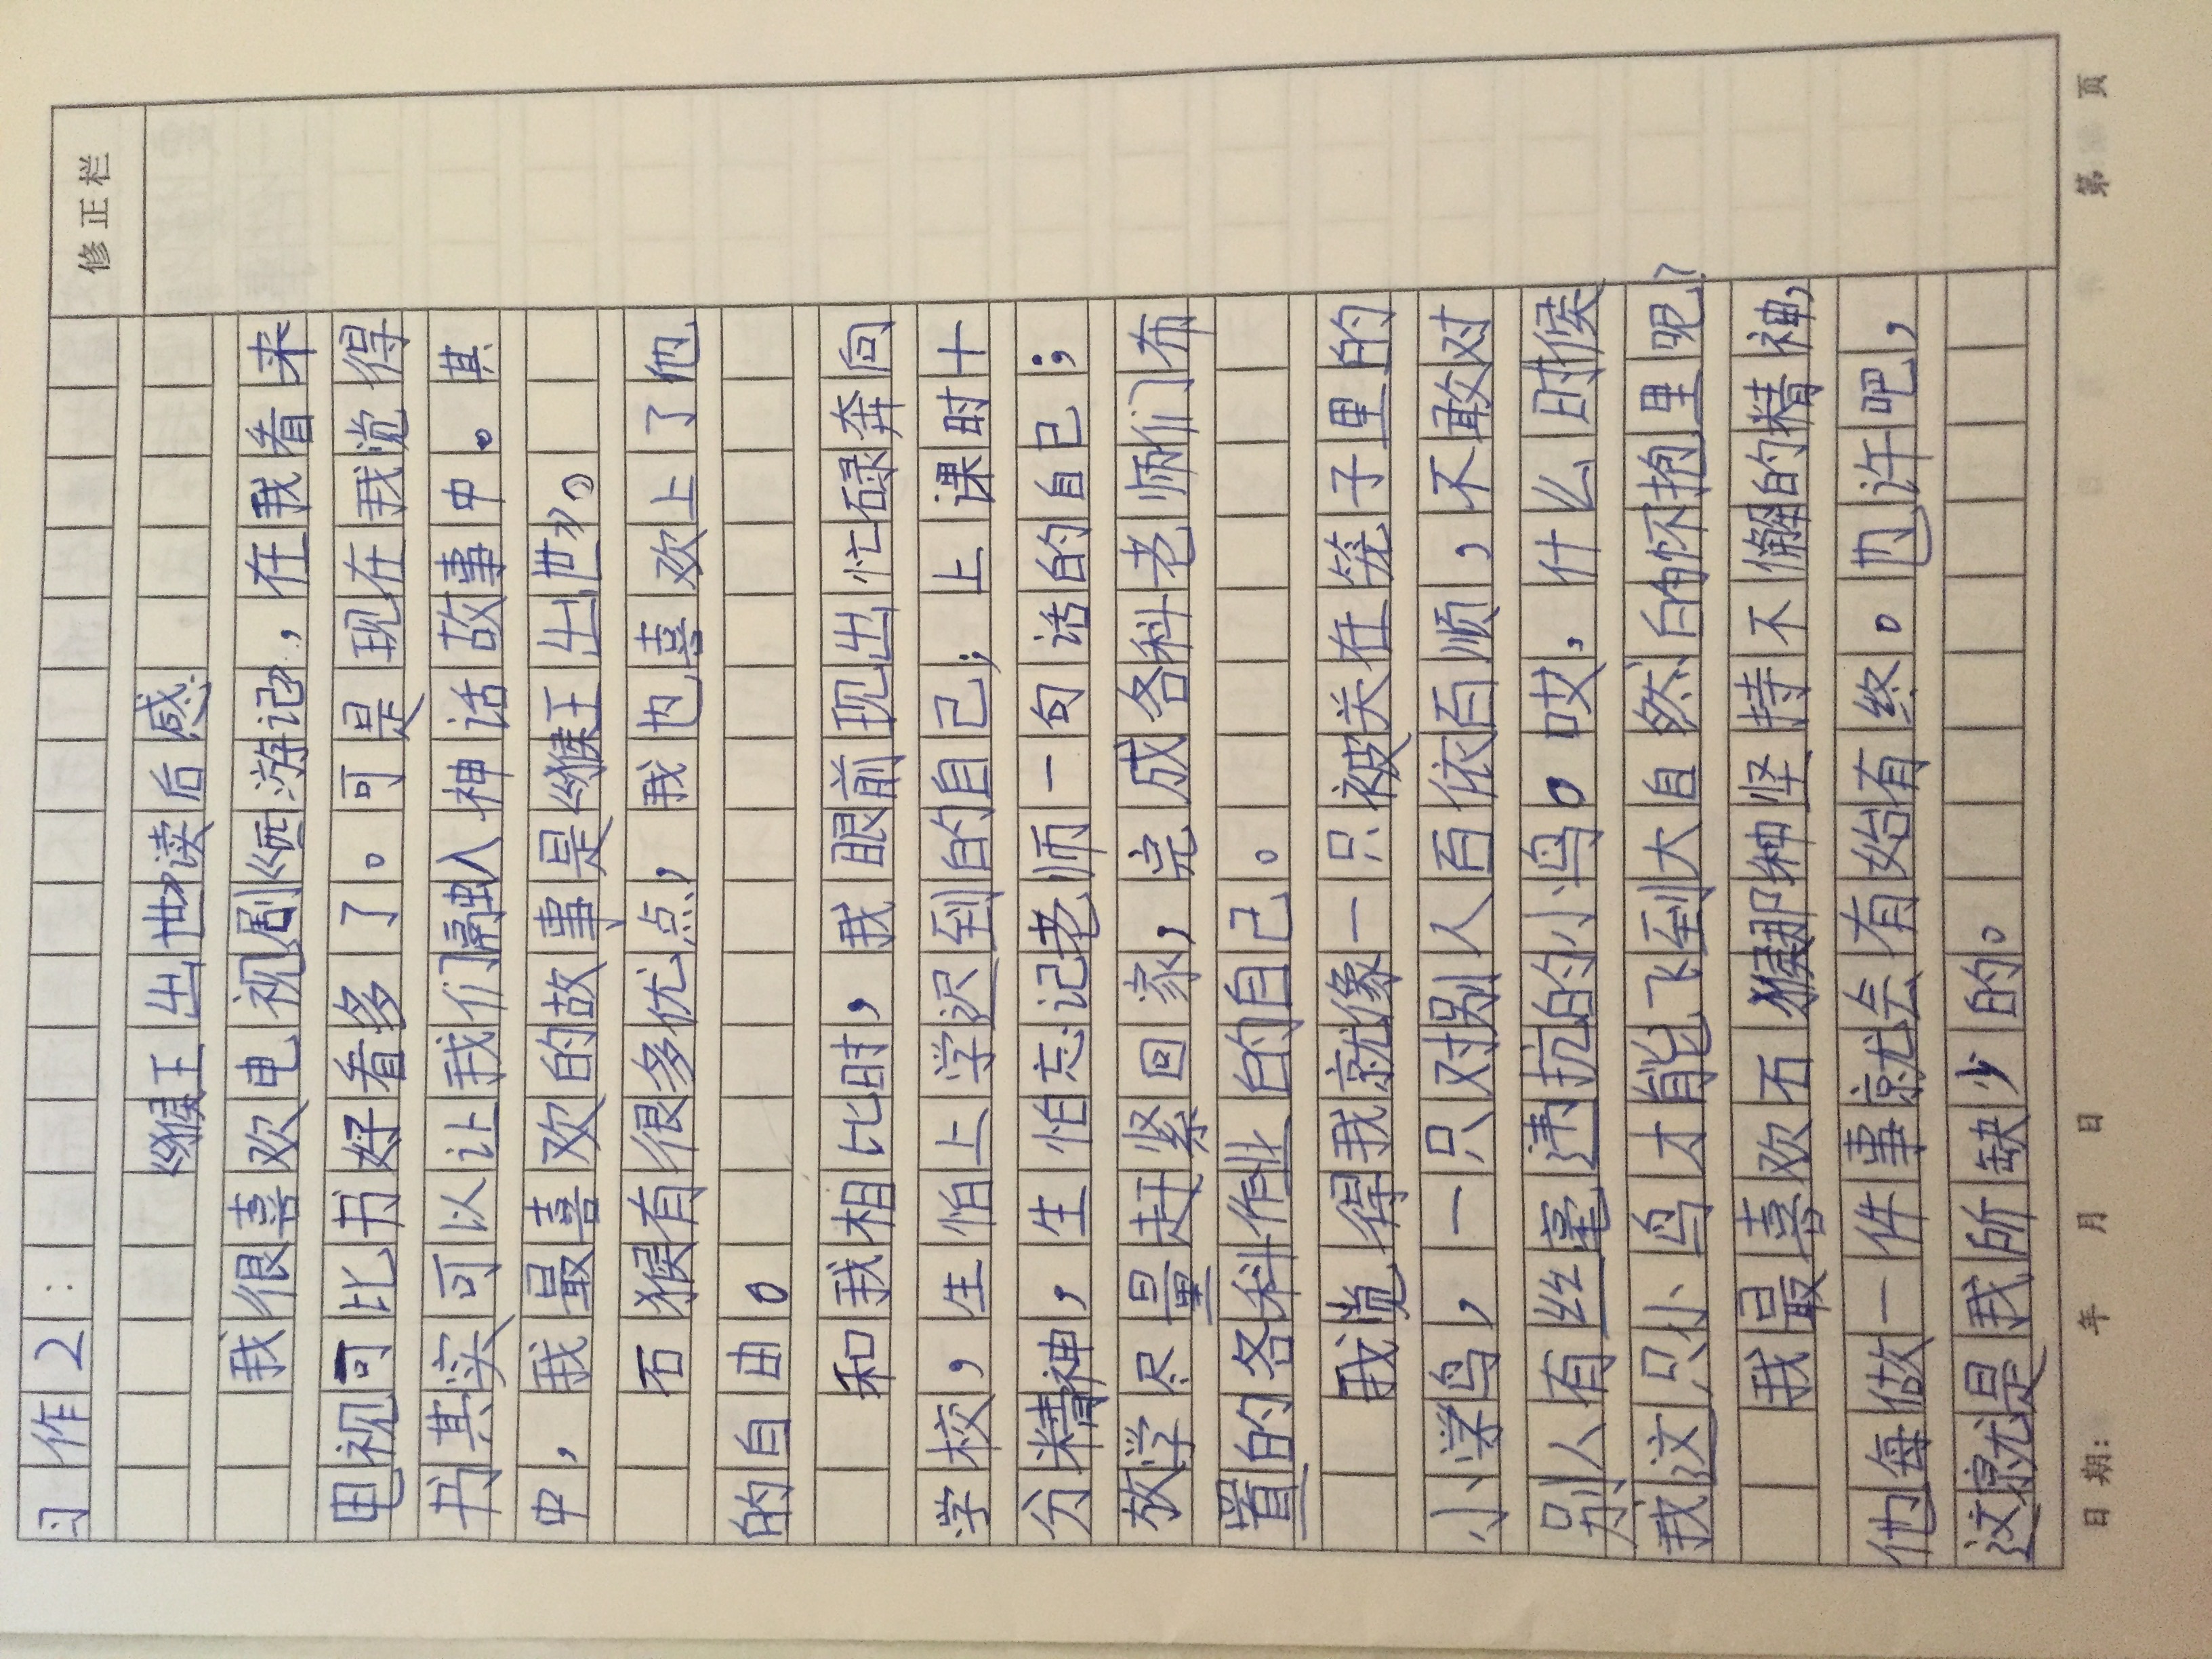 习作2：
修正栏
《猴王出世》读后感
我很喜欢电视剧《西游记》，在我看来
电视可比书好看多了。可是现在我觉得
书其实可以让我们融入神话故事中。其
中，我最喜欢的故事是《猴王出世》。
石猴有很多优点，我也喜欢上了他
的自由。
和我相比时，我眼前现出忙碌奔向
学校，生怕上学迟到的自己；上课时十
分精神，生怕忘记老师一句话的自己；
放学尽量赶紧回家，完成各科老师们布
置的各科作业的自己。
我觉得我就像一只被关在笼子里的
小学鸟，一只对别人百依百顺，不敢对
别人有丝毫违抗的小鸟。哎，什么时候
我这只小鸟才能飞到大自然的怀抱里呢？
我最喜欢石猴那种坚持不懈的精神，
他每做一件事就会有始有终。也许吧，
这就是我所缺少的。
日期： 年 月 日 第 页